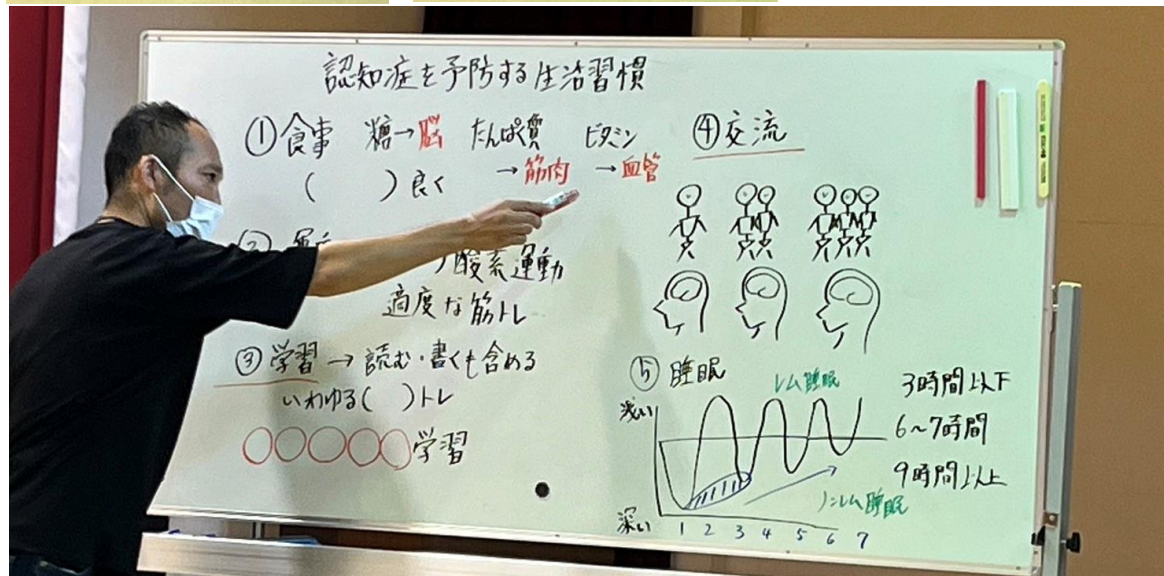 認知症を予防する生活習慣
①食事 糖→脳 たんぱく質 ビタミン
( )良く →筋肉 →血管
②
酸素運動
適度な筋トレ
③学習→読む・書くも含める
いわゆる( )トレ
学習
④交流
⑤睡眠
レム睡眠
浅い
深い
1 2 3 4 5 6 7
ノンレム睡眠
3時間以下
6〜7時間
9時間以上